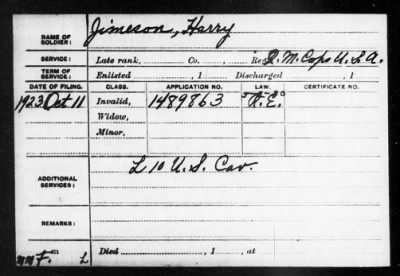 NAME OF SOLDIER: Jimeson, Harry
SERVICE: Late rank, Co. , Reg Q. M. Cops U.S.A.
TERM OF SERVICE: Enlisted , 1 Discharged , 1
DATE OF FILING. CLASS. APPLICATION NO. LAW. CERTIFICATE NO.
1923 Oct 11 Invalid, 1489863 R.E.
Widow,
Minor,
ADDITIONAL SERVICES: L 10 U.S. Cav.
REMARKS:
Died , 1 , at